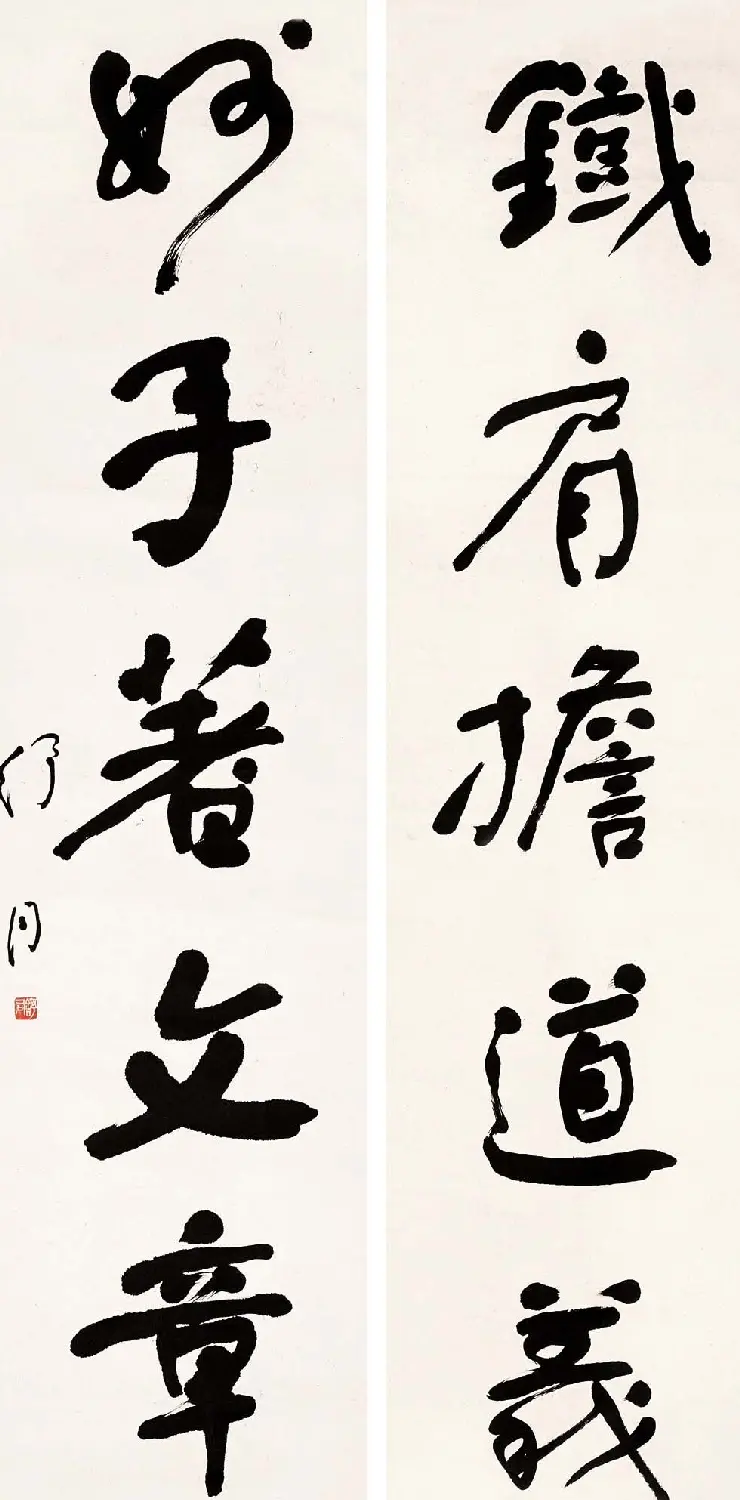 鐵肩擔道義
妙手著文章
舒同